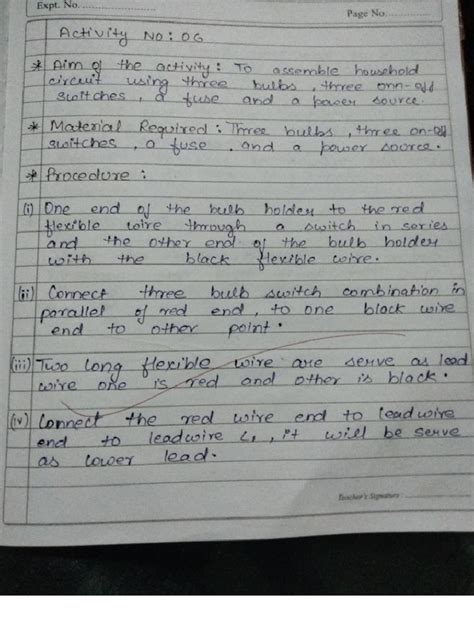 Expt. No.
Page No.
Activity No : 06
* Aim of the activity : To assemble household
circuit using three bulbs, three onn-off
switches, a fuse and a power source
* Material Required : Three bulbs, three on-off
switches, a fuse, and a power source.
* Procedure :
(i) One end of the bulb holder to the red
flexible wire through a switch in series
and the other end of the bulb holder
with the black flexible wire.
(ii) Connect three bulb switch combination in
parallel of red end, to one black wire
end to other point.
(iii) Two long flexible wire are serve as lead
wire one is red and other is black.
(iv) Connect the red wire end to lead wire
end to leadwire L1, it will be serve
as lower lead.
Teacher's Signature :